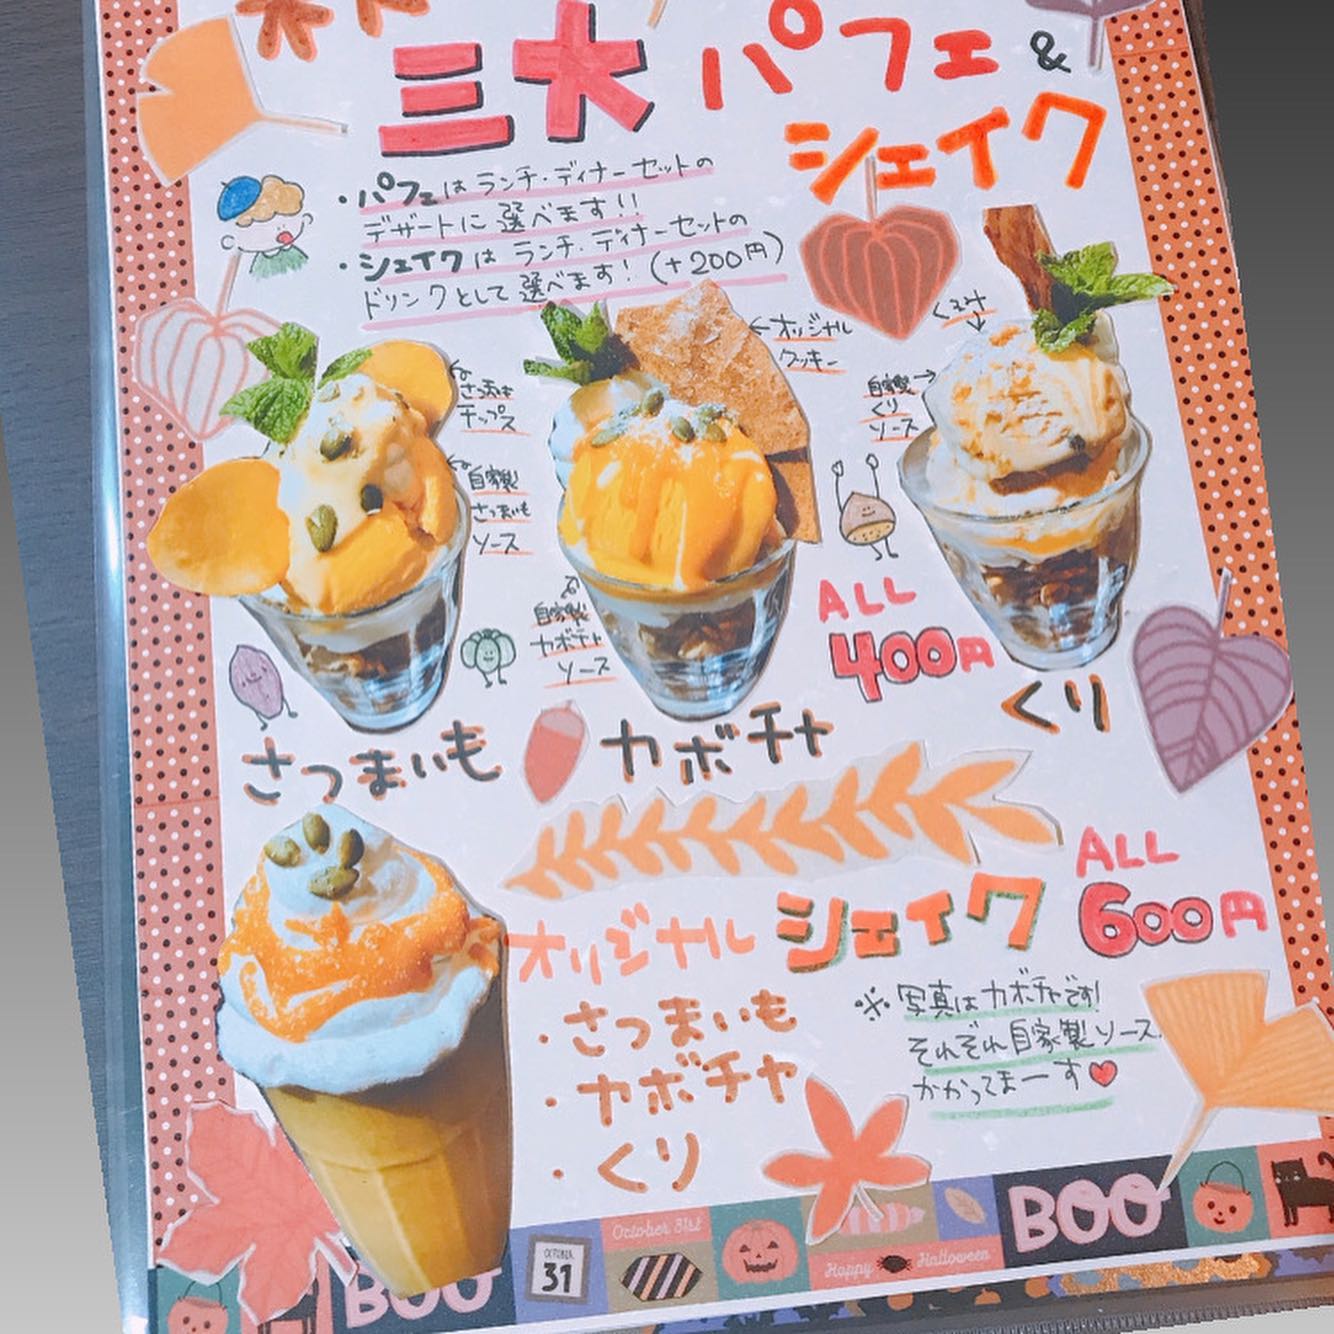 三大パフェ&
シェイク
・パフェはランチ・ディナーセットの
デザートに選べます!!
・シェイクはランチ・ディナーセットの
ドリンクとして選べます!(+200円)
さつまいも
チップス
自家製
さつまいも
ソース
オリジナル
クッキー
自家製
カボチャ
ソース
くるみ
自家製
くり
ソース
ALL
400円
さつまいも
カボチャ
くり
オリジナルシェイク
ALL
600円
・さつまいも
・カボチャ
・くり
※写真はカボチャです!
それぞれ自家製ソース
かかってまーす
BOO
OCTOBER
31
October 31st
Happy Halloween
BOO